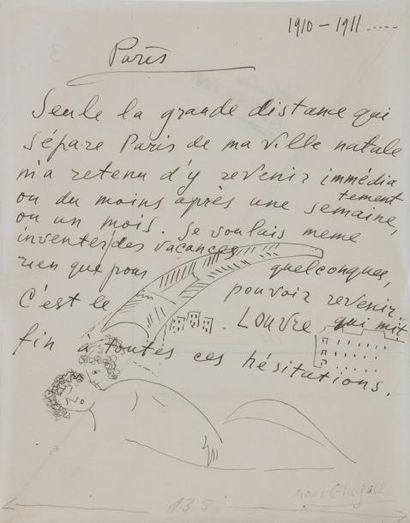 1910 - 1911 .....
Paris
Seule la grande distance qui
sépare Paris de ma ville natale
m'a retenu d'y revenir immédia
tement
ou du moins après une semaine,
ou un mois. Je voulais meme
inventer des vacances
quelconques,
rien que pour pouvoir revenir.
C'est le Louvre qui mit
fin a toutes ces hésitations.
Marc Chagall
135